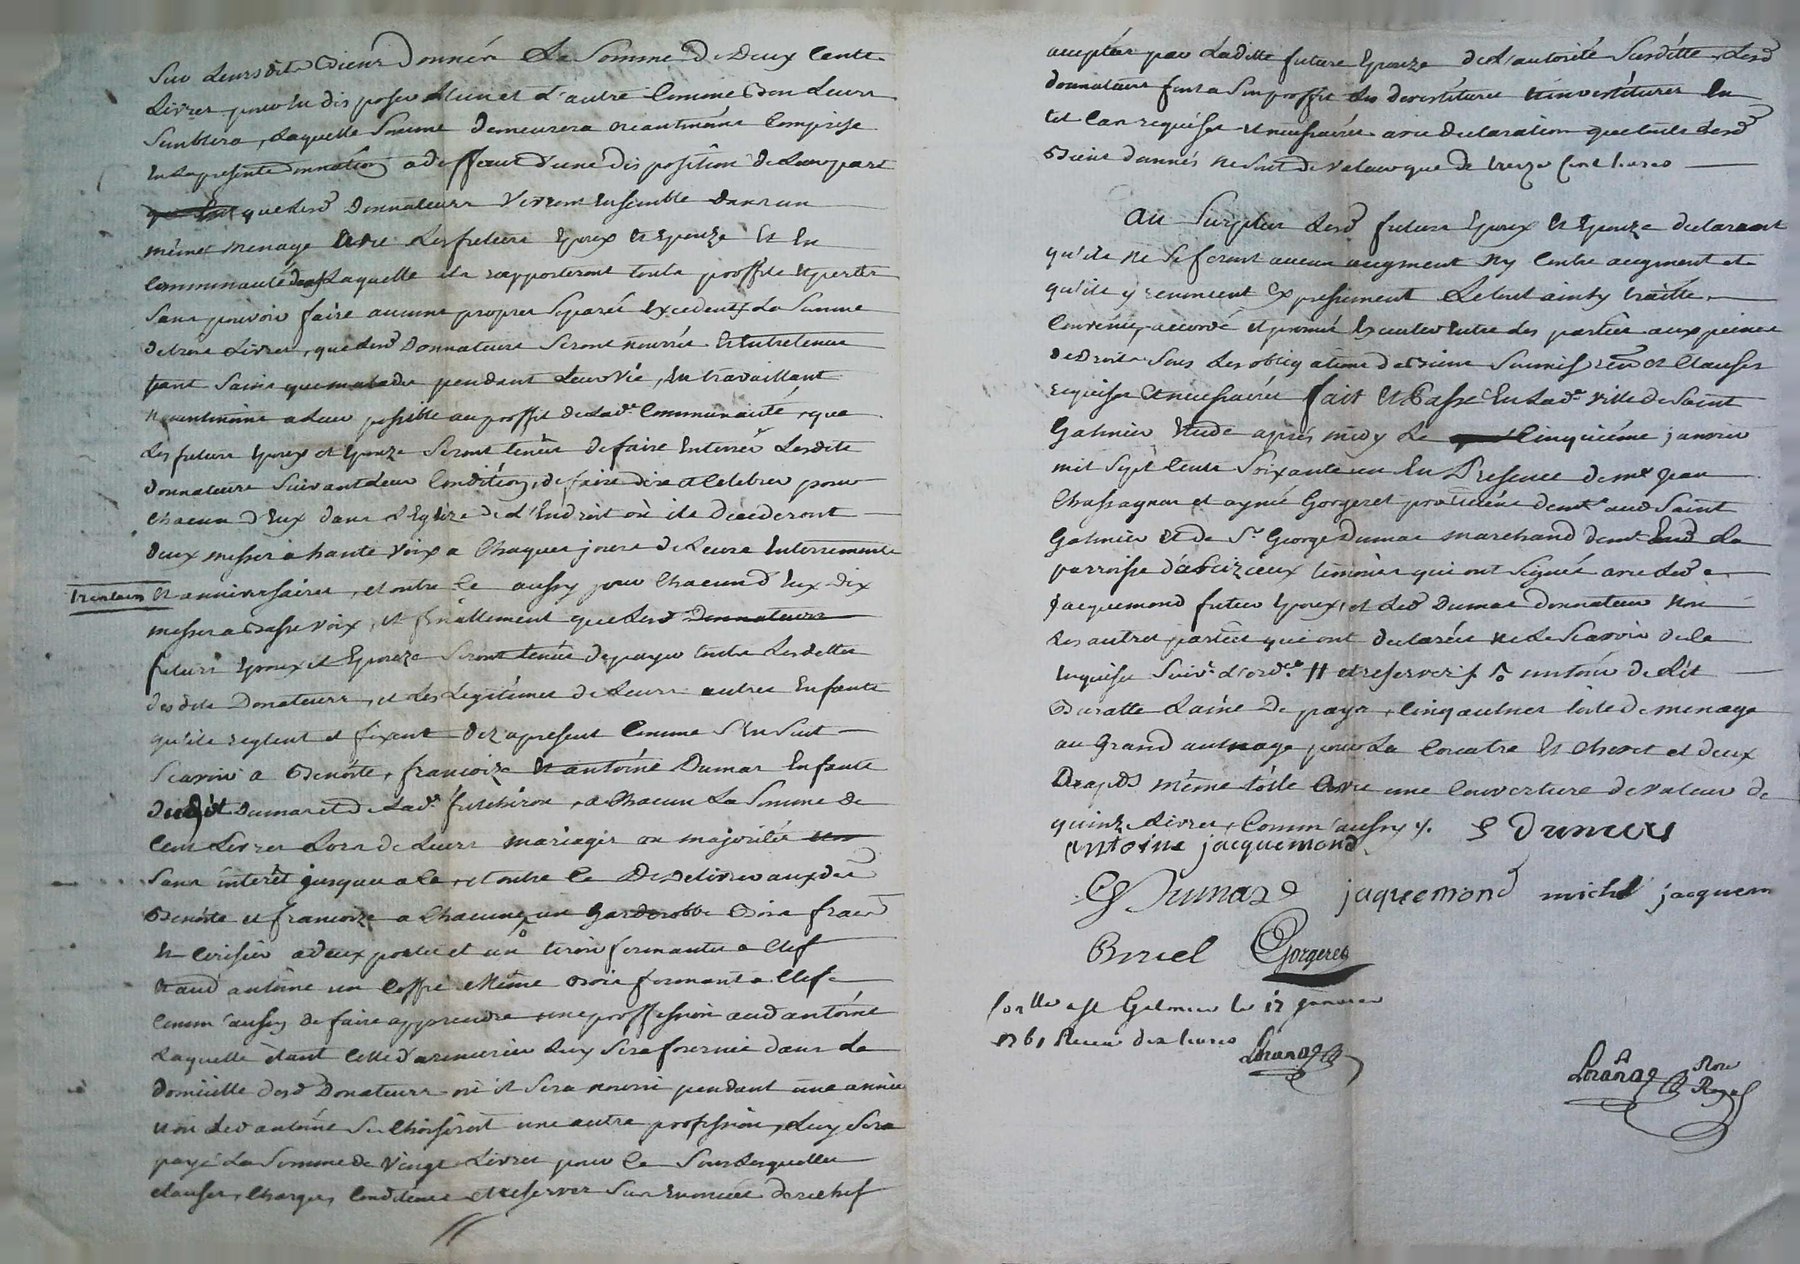 Sur Leursdits Biens Donnés La Somme De Deux Cents
Livres pour En disposer L'un et L'autre Comme Bon Leurs
Semblera, Laquelle Somme demeurera néantmoins Comprise
En La presente donnation a deffaut d'une disposition de Leur part
que Lesd Donnateurs Vivront Ensemble dans un
mêmes menage avec Les futurs Epoux et Epouze Et En
Communauté dans Laquelle ils rapporteront touts proffits et pertes
Sans pouvoir faire aucuns propres Separés Excedents La Somme
de trois Livres, que Lesd Donnateurs Seront nourris Et Entretenus
tant Sains que malades pendant Leur Vie, En travaillant
néantmoins a Leur possible au proffit de Lad. Communauté, que
Les futurs Epoux et Epouze Seront tenus de faire Enterrer Lesdits
donnateurs Suivant Leur Condition, de faire dire et Celebrer pour
Chacun d'Eux dans L'Eglize de L'Endroit où ils decederont
deux messes a haute Voix a Chaques jours de Leurs Enterrements
trentains Et anniversaires, et outre Ce aussy pour Chacun d'Eux dix
messes a Basse Voix, et finallement que Lesd Donnateurs
futurs Epoux et Epouze Seront tenus de payer toutes Les dettes
desdits Donateurs, et Les Legitimes de Leurs autres Enfants
qu'ils reglent et fixent dez apresent Comme S'En Suit
Scavoir a Benoite, francoize Et antoine Dumas Enfants
dudit Dumas et de Lad. futchiron, a Chacun La Somme de
Cent Livres Lors de Leurs mariages ou majorités
Sans interêt jusques a Ce, et outre Ce De Delivrer auxd
Benoite et francoize a Chacune un Garderobbe Bois fraed
Et Cerisier a deux portes et un tiroir formantes a Clef
Et aud antoine un Coffre Même Bois formant a Clef
Comm'aussy de faire apprendre une proffession aud antoine
Laquelle étant Celle d'armurier Luy Sera fournie dans Le
domicille desd Donateurs où il Sera nourri pendant une année
Et où Led antoine Se Choisiroit une autre profession, Luy Sera
payé La Somme de Vingt Livres pour Ce Sous Lesquelles
clauses, Charges, Conditions et reserves Sus Enoncées derechef
acceptées par Laditte future Epouze de L'autorité Susditte, Lesd
donnateurs font a Son proffit Les devestitures Et investitures En
tel Cas requises et necessaires avec declaration que touts Lesd
Biens donnés ne Sont de Valeur que de treize Cent Livres
Au Surplus Lesd futurs Epoux Et Epouze declarent
qu'ils ne Se feront aucun augment Ny Contre augment et
qu'ils y renoncent Expressement Le tout ainsy traitté
Convenu, accordé et promis Executer Entre Les parties aux peines
de Droits Sous Les obligations de Biens Soumis ren.on et Clauses
requises et necessaires fait Et Passé En Lad. Ville de Saint
Galmier Etude après midy Le Cinquième janvier
mil Sept Cents Soixante un En Presence de m.e Jean
Chassagnon et aymé Gorgeret praticiens dem.t aud Saint
Galmier Et de S.r George Dumas marchand dem.t Lad La
parroisse d'aveizieux temoins qui ont Signés avec Led
Jacquemond futur Epoux, et Led Dumas donnateur Non
Les autres parties qui ont declarées ne Le Scavoir de Ce
Enquises Suiv.t L'ord.ce // et reserves
Buratte Laine de pays, Cinq aulnes toile de menage
au Grand aulnage pour La Couatre Et Chevet et deux
Draps même toile avec une Couverture de Valeur de
quinze Livres, Comm'aussy. g Dumas
antoine jacquemond
G Dumas jaquemond michel jacquem
Boriel Gorgeret
Con.llé a St Galmier le 17 janvier
1761 Receu dix livres
Loranges
Loranges Nore Royal